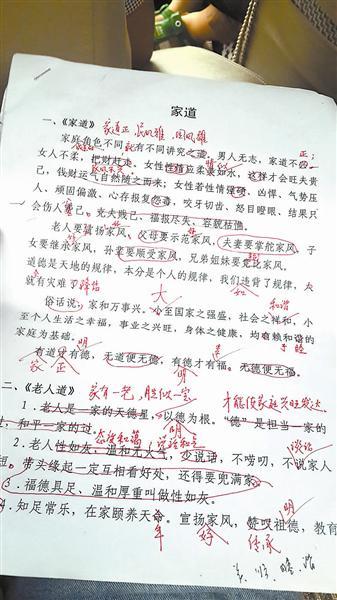 家道
一、《家道》 家道正
家庭角色不同，有不同讲究之道。男人无志，家道不
女人不柔，把财赶走。女性性应柔要如水，这样才会旺夫贵
己，钱财运气自然随之而来；女性若性情强硬、凶悍、气势压
人、顽固偏激、心存报复怨毒、咬牙切齿、怒目瞪眼、结果只
会伤人害己。克夫贱己、福报尽失、容貌枯槁。
老人要猛扬家风，父母要示范家风，夫妻要掌舵家风，子
女要继承家风，孙辈要顺受家风，兄弟姐妹要竞比家风。
道德是天地的规律，本分是个人的规律，我们违背了规律，
就有灾难了 降临
大 和 和谐
俗话说：家和万事兴。小至国家之强盛，社会之祥和，小
至个人生活之幸福，事业之兴旺，身体之健康，均有赖和谐的
家庭为基础。
有道才有德，无道便无德，有德才有福。无德便无福。
家 正 明
二、《老人道》 家有一老，胜似一宝
1．老人是一家的天德星，以德为根。“德”是担当一家的
过，和平一家的过。
2．老人性如灰，温和无火气，少说话，不唠叨，不说家人
短。带头缘起一定互相看好处，还得要兜满家。
3．福德具足、温和厚重叫做性如灰。
4．知足常乐，在家颐养天命。宣扬家风，赞叹祖德，教育
年 传承